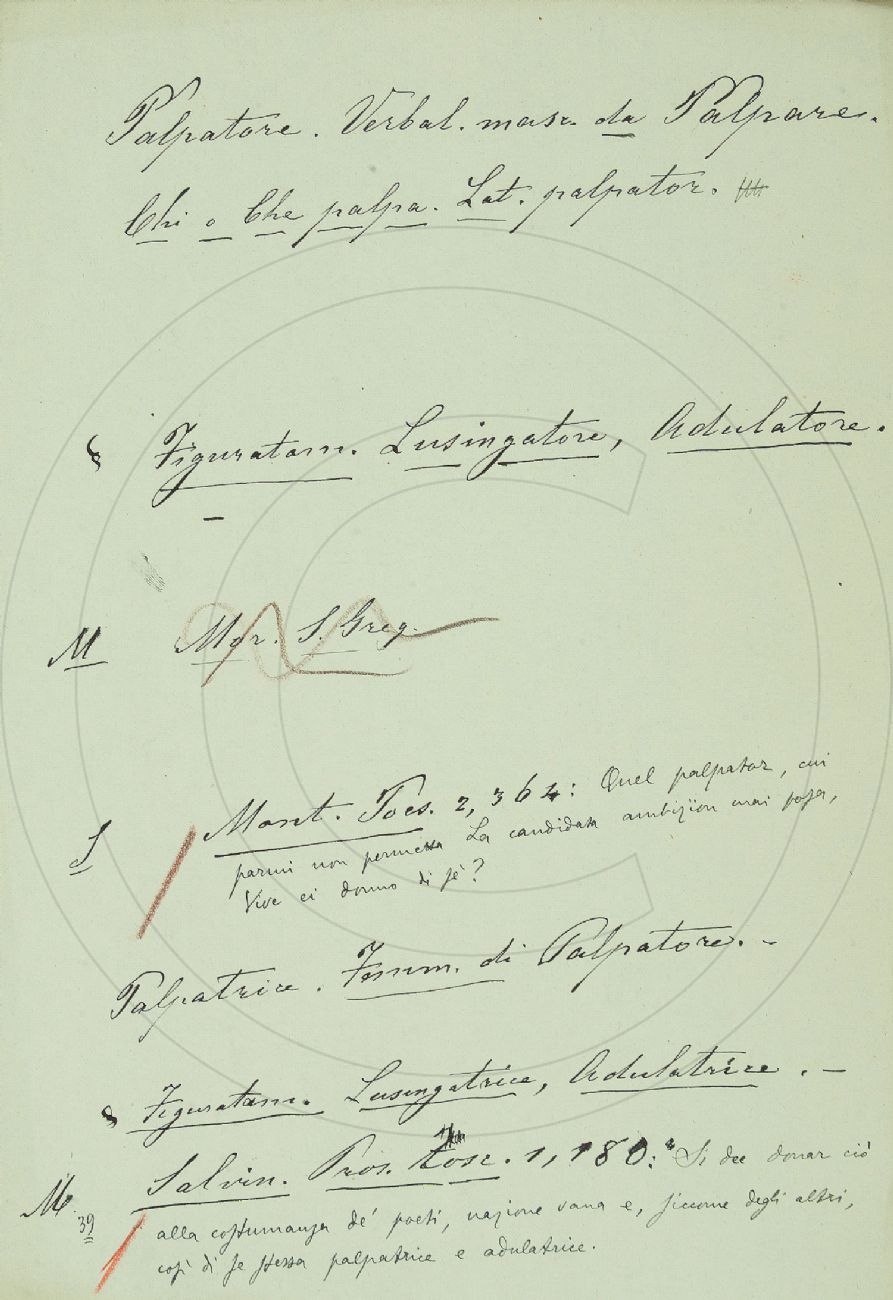 Palpatore. Verbal. masc. da Palpare.
Chi o Che palpa. Lat. palpator.
§ Figuratam. Lusingatore, Adulatore.
M Mor. S. Greg.
S Mont. Poes. 2, 364: Quel palpator, cui
parmi non permessa La candidata ambizion mai posa,
Vive ei donno di sè?
Palpatrice. Femm. di Palpatore. –
§ Figuratam. Lusingatrice, Adulatrice. –
M. Salvin. Pros. tosc. 1, 180: Si dee donar ciò
39 alla costumanza de' poeti, nazione vana e, siccome degli altri,
così di se stessa palpatrice e adulatrice.